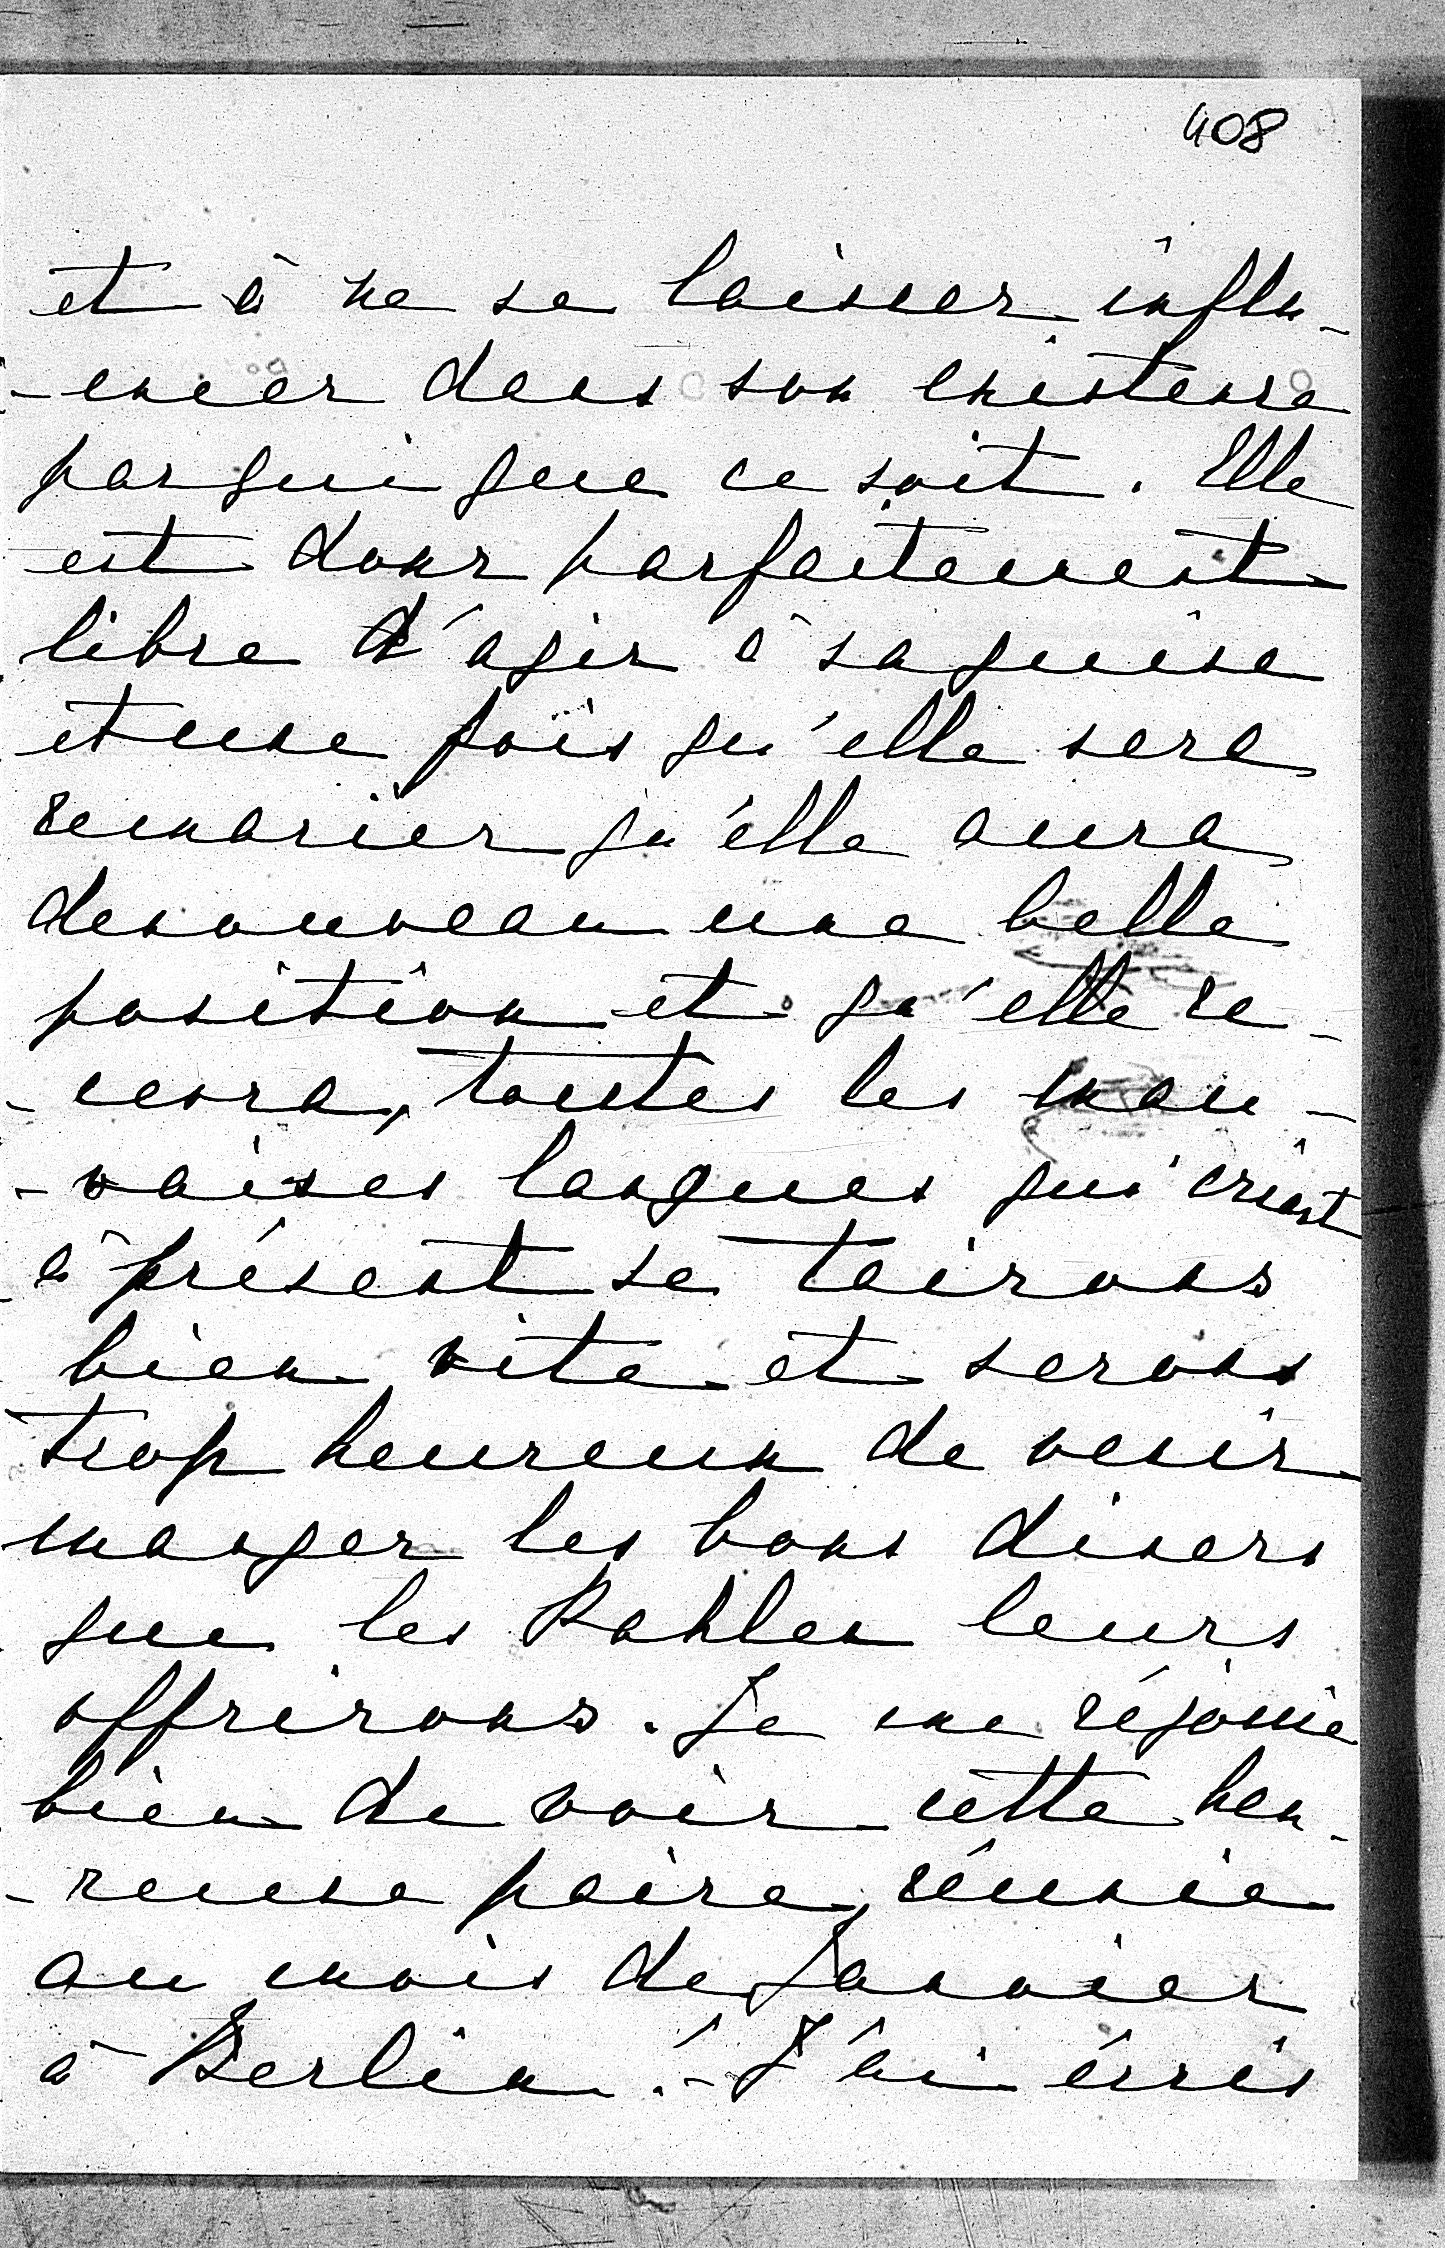 408
et à ne se laisser influ-
-encer dans son existence
par qui que ce soit. Elle
est donc parfaitement
libre d'agir à sa guise
et une fois qu'elle sera
remarier qu'elle aura
denouveau une belle
position et qu'elle re-
-cevra, toutes les mau-
-vaises langues qui crient
à présent se tairons
bien vite et serons
trop heureux de venir
manger les bons diners
que les Pahlen leurs
offrirons. Je me réjouie
bien de voir cette heu-
-reuse paire, réunie
au mois de Janvier
à Berlin. - J'ai écris